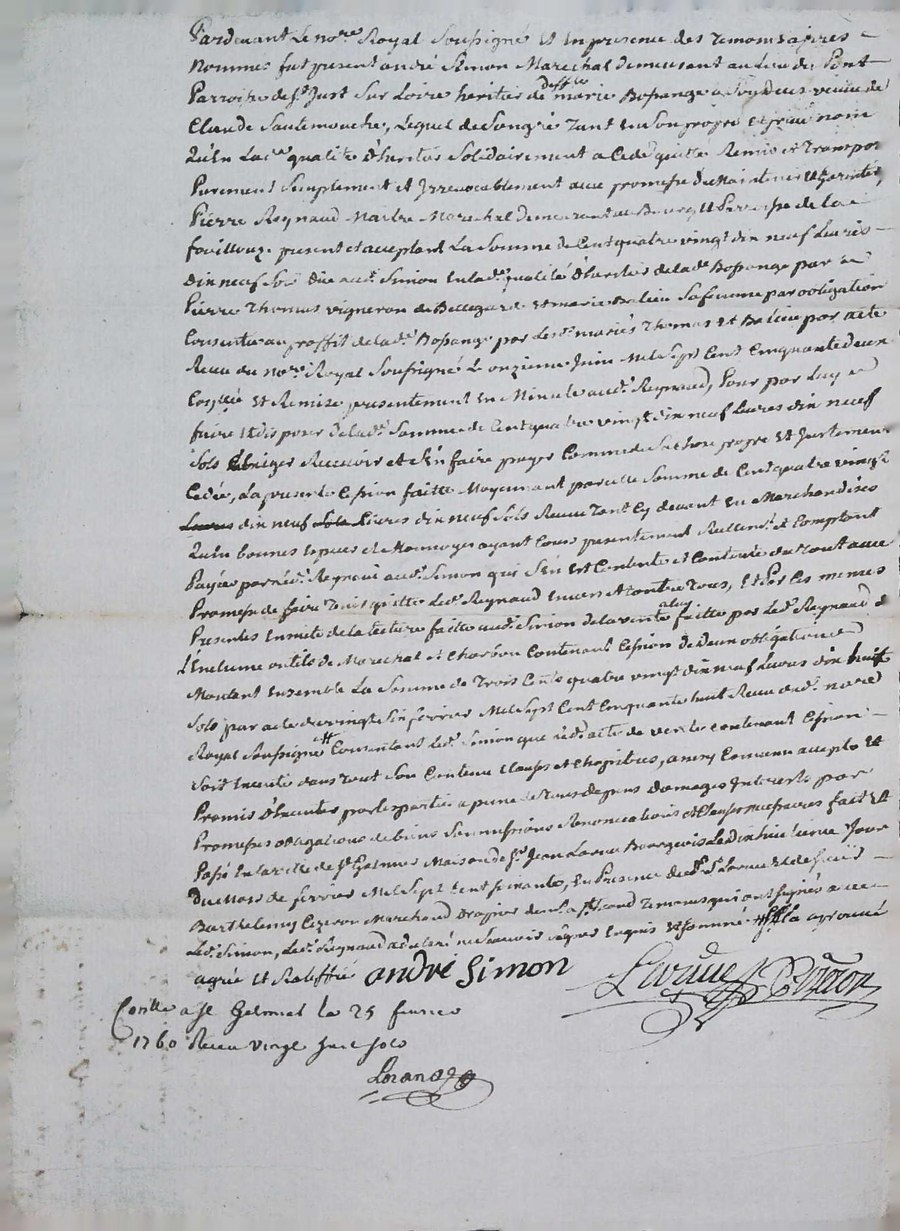 Pardevant le no.re Royal Soussigné et en presence des temoins apres
Nommes fut present andré Simon Marechal demeurant au lieu du Pont
Parroisse de S.t Just Sur Loire heritier de deffte marie Bossange a Son deces veuve de
Claude Sautemouche, Lequel de Son gré tant en Son propre et privé nom
qu'en lad.e qualité d'heritier Solidairement a Cedé quitté Remis et Transpor
Purement Simplement et Irrevocablement avec promesse de Maintenir et Garentir,
Pierre Reynaud Maitre Marechal demeurant au Bourg et Parroisse de la
fouillouze present et acceptant La Somme de Cent quatre vingt dix neuf Livres
dix neuf Sols Due aud.t Simon en lad.e qualité d'heritier de lad.e Bossange par
Pierre Thomas vigneron de Bellegarde et marie Balieu Sa femme par obligation
Consentie au proffit de lad.e Bossange par lesd.ts mariés Thomas et Balieu par acte
Recu du no.re Royal Soussigné Le onzieme Juin Mil Sept Cent Cinquante deux
et Remise presentement en Minute aud.t Reynaud, Pour par luy
faire et disposer de lad.e Somme de Cent quatre vingt dix neuf Livres dix neuf
Sols Exiger Recevoir et S'en faire payer Comme de Sa chose propre et Justement
Cedée, La presente Cession faitte Moyennant pareille Somme de Cent quatre vingt
Livres dix neuf Sols Livres dix neuf Sols Recue tant Cy devant en Marchandises
qu'en bonnes Especes et Monnoyes ayant Cours presentement Reellem.t et Comptant
Payée par led.t Reynaud aud.t Simon qui S'en est Contenté et Contente du tout avec
Promesse de faire tenir quitte led.t Reynaud Envers et Contre Tous, Et Par Ces memes
Presentes Ensuite de la lecture faitte aud.t Simon de la vente a luy faitte par led.t Reynaud d
l'Enclume outils de Marechal et Charbon Contenant Cession de deux obligations
Montant Ensemble La Somme de Trois Cents quatre vingt dix neuf Livres dix huit
Sols par acte du vingt Six fevrier Mil Sept Cent Cinquante huit Recu dud.t no.re
Royal Soussigné Consentant led.t Simon que led.t acte de vente Contenant Cession
Soit Executé dans tout Son Contenu Clauses et Chapitres, ainsy Convenu accepté et
Promis d'Executer par les parties a peine de tous depens Domages Interests par
Promesses obligations de biens Soumissions Renonciations et Clauses Necessaires fait et
Passé En la ville de S.t Galmier Maison de S.r Jean Larue Bourgeois Le dix huitieme Jour
Du Mois de fevrier Mil Sept Cent Soixante, En Presence dud.t S.r Larue et de Sieur
Barthelemy Cizeron Marchand Drapier dud.t S.t Temoins qui ont Signés avec
Led.t Simon, Led.t Reynaud a declaré ne Scavoir Signer Enquis et Sommé
agréé et Ratiffié
andré Simon
Larue
Cizeron
Conlle a St Galmier le 25 fevrier
1760 Receu vingt Six Sols